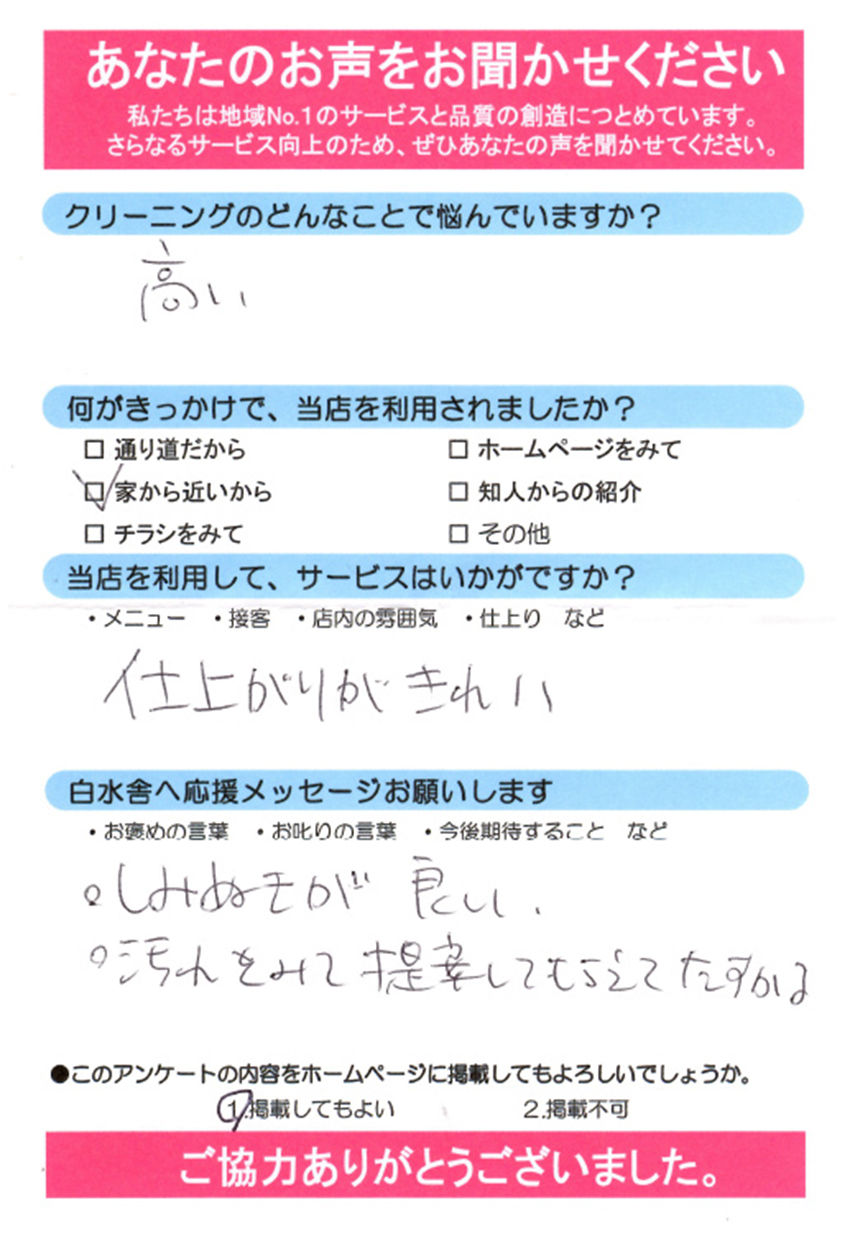 あなたのお声をお聞かせください
私たちは地域No.1のサービスと品質の創造につとめています。
さらなるサービス向上のため、ぜひあなたの声を聞かせてください。
クリーニングのどんなことで悩んでいますか？
高い
何がきっかけで、当店を利用されましたか？
□ 通り道だから □ ホームページをみて
☑ 家から近いから □ 知人からの紹介
□ チラシをみて □ その他
当店を利用して、サービスはいかがですか？
・メニュー ・接客 ・店内の雰囲気 ・仕上り など
仕上がりがきれい
白水舎へ応援メッセージお願いします
・お褒めの言葉 ・お叱りの言葉 ・今後期待すること など
。しみぬきが良い、
。汚れをみて提案してもらえてたすかる
●このアンケートの内容をホームページに掲載してもよろしいでしょうか。
1.掲載してもよい 2.掲載不可
ご協力ありがとうございました。